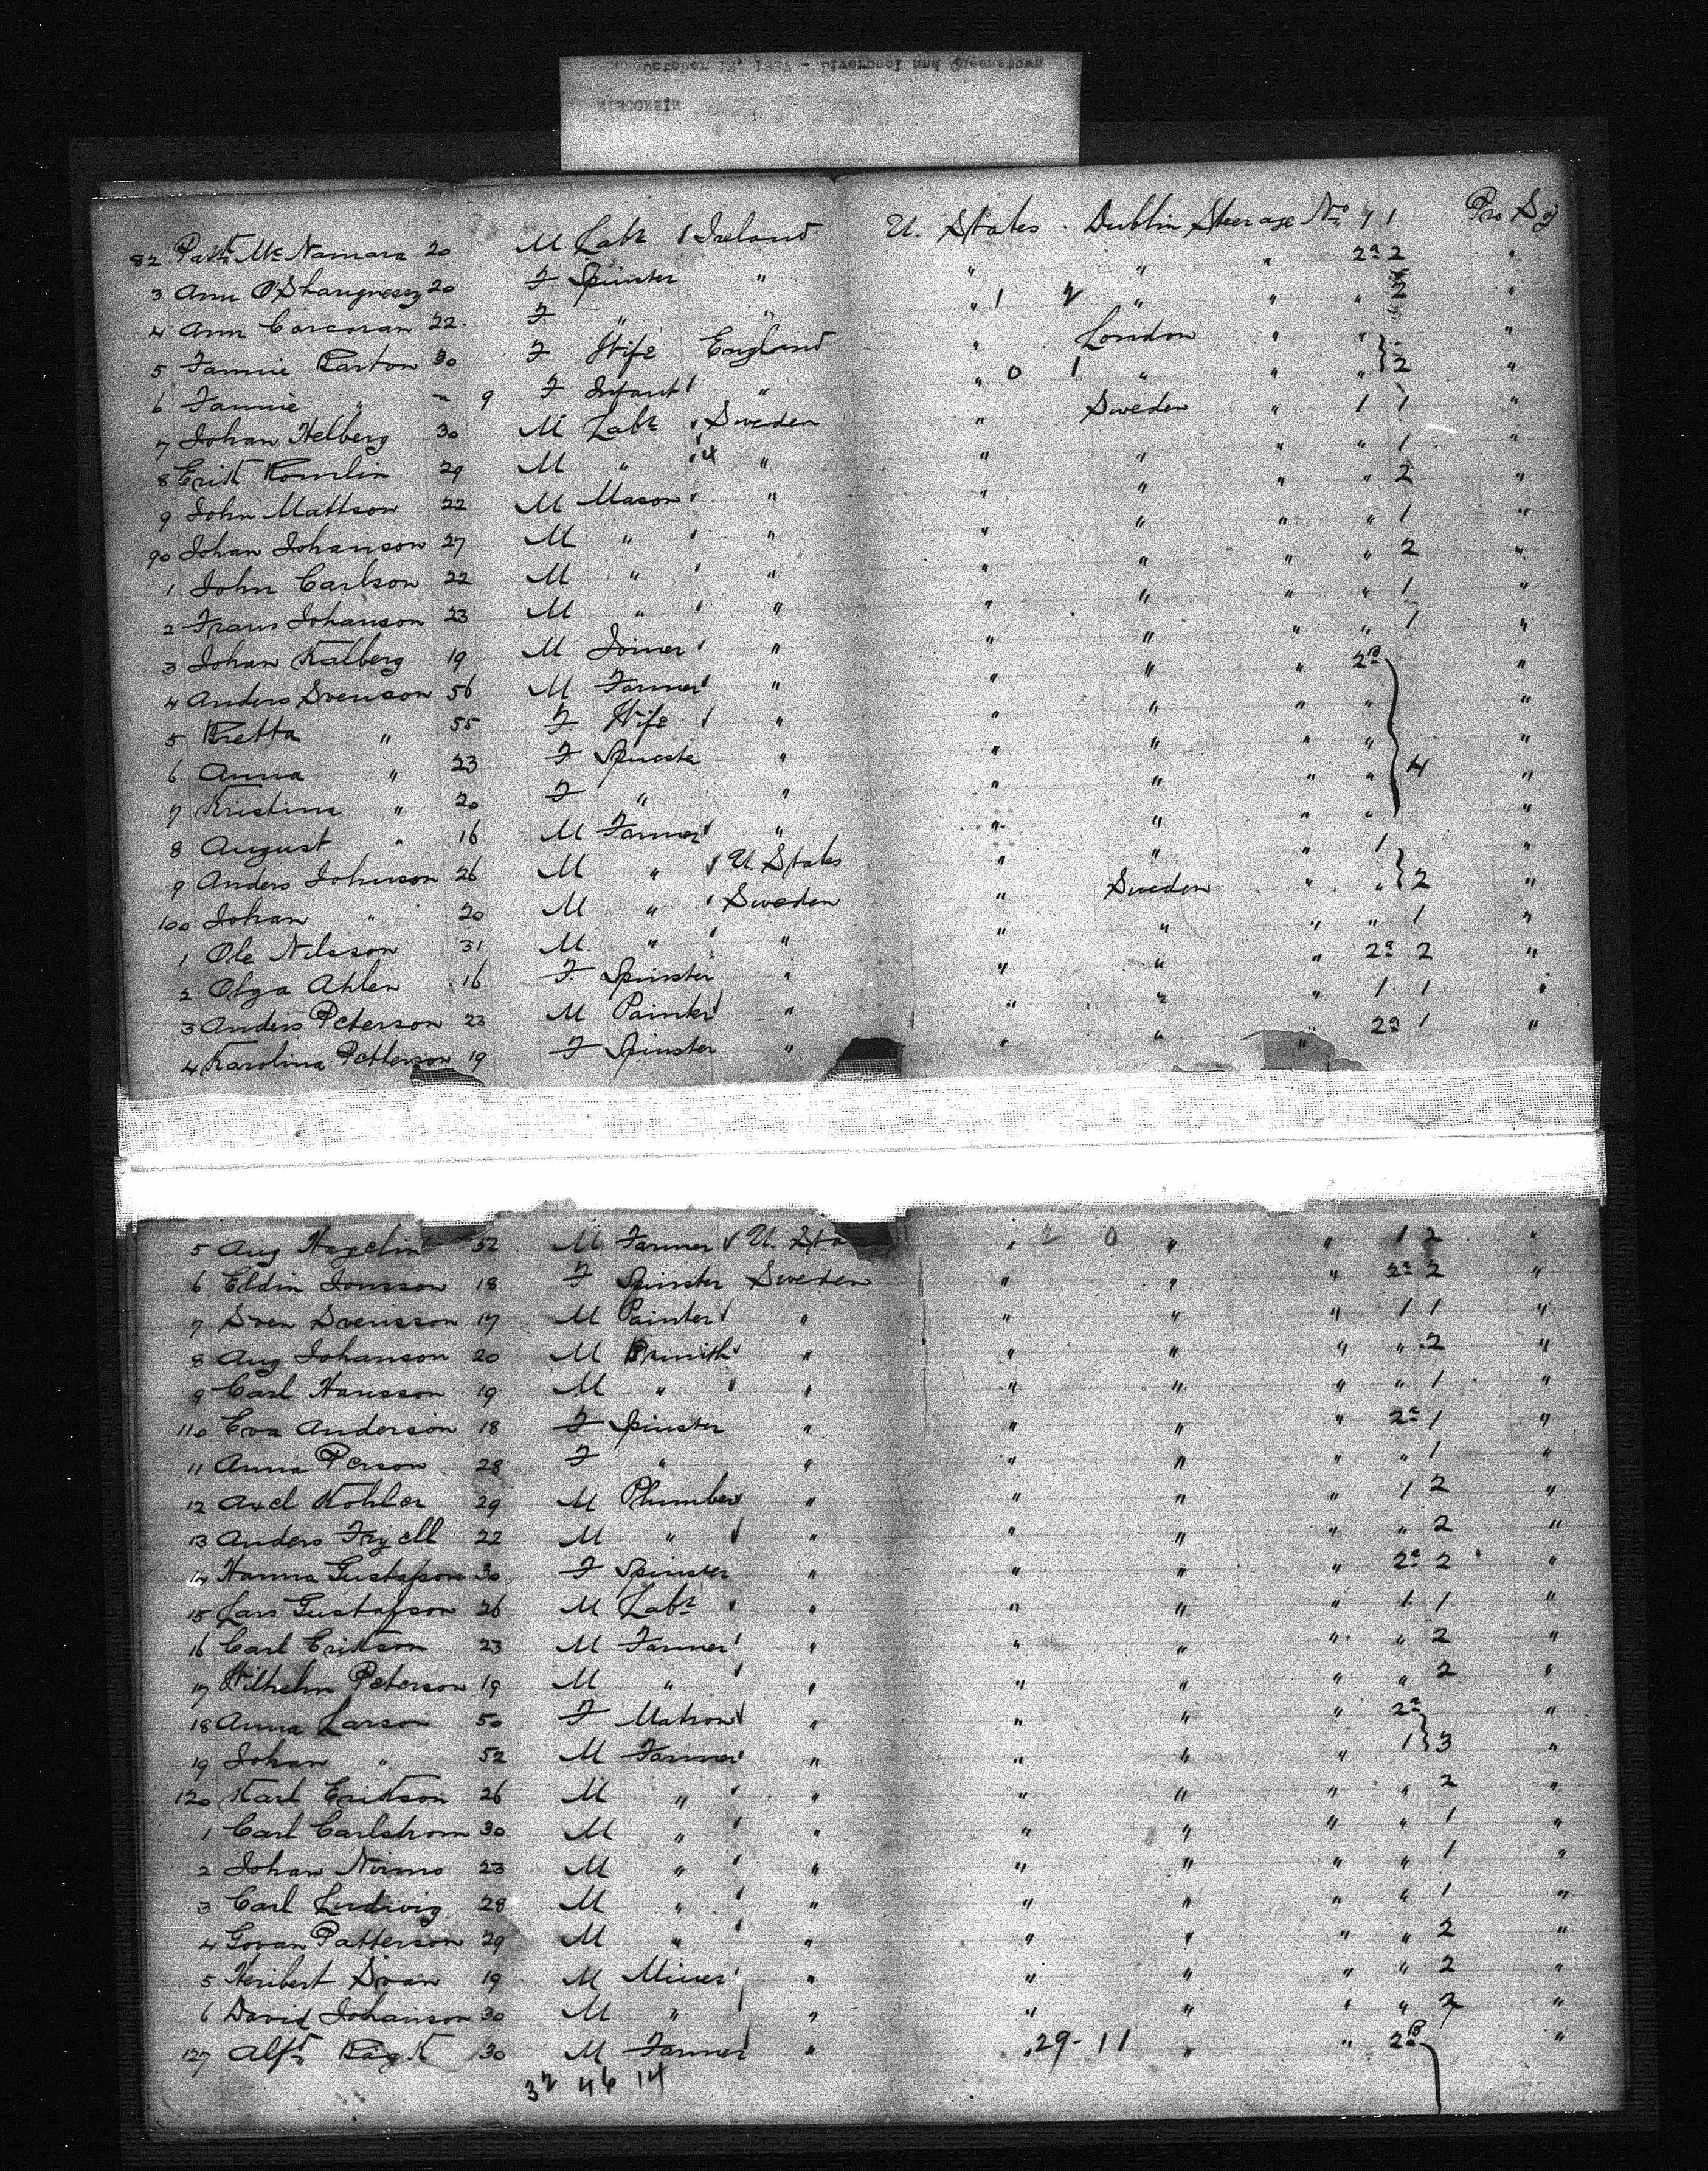 October 13, 1887 - Liverpool and Queenstown
WISCONSIN
82 Patk McNamara 20 M Labr / Ireland U. States Dublin Steerage No 1 1 Pro Soj
3 Ann O'Shaugnessy 20 F Spinster " " " " 2a 2 "
4 Ann Corcoran 22 F " " " 1 2 " " " 2 "
5 Fannie Barton 30 F Wife England " London " " "
6 Fannie " " 9 F Infant / " " 0 1 " " " } 2 "
7 Johan Helberg 30 M Labr / Sweden " Sweden " 1 1 "
8 Erik Romlin 29 M " / 4 " " " " " 1 "
9 John Mattson 22 M Mason / " " " " " 2 "
90 Johan Johanson 27 M " / " " " " " 1 "
1 John Carlson 22 M " / " " " " " 2 "
2 Frans Johanson 23 M " / " " " " " 1 "
3 Johan Kalberg 19 M Joiner / " " " " " 1 "
4 Anders Svenson 56 M Farmer / " " " " 2B "
5 Bretta " 55 F Wife / " " " " " "
6 Anna " 23 F Spinster " " " " " "
7 Kristina " 20 F " " " " " " } 4 "
8 August " 16 M Farmer / " " " " "
9 Anders Johnson 26 M " √ U. States " " " 1 "
100 Johan " 20 M " / Sweden " Sweden " " } 2 "
1 Ole Nilsson 31 M " / " " " " " 1 "
2 Olga Ahlen 16 F Spinster " " " " 2a 2 "
3 Anders Peterson 23 M Painter / " " " " 1 1 "
4 Karolina Petterson 19 F Spinster " " " " 2a 1 "
5 Aug Hagelin 32 M Farmer √ U. Sta " 2 0 " " 1 2 "
6 Eldin Jonsson 18 F Spinster Sweden " " " 2a 2 "
7 Sven Svensson 17 M Painter / " " " " 1 1 "
8 Aug Johanson 20 M Bsmith √ " " " " " 2 "
9 Carl Hansson 19 M " √ " " " " " 1 "
110 Eva Anderson 18 F Spinster " " " " 2a 1 "
11 Anna Person 28 F " " " " " " 1 "
12 Axel Kohler 29 M Plumber √ " " " " 1 2 "
13 Anders Fryell 22 M " √ " " " " " 2 "
14 Hanna Gustafson 30 F Spinster " " " " 2a 2 "
15 Lars Gustafson 26 M Labr √ " " " " 1 1 "
16 Carl Erikson 23 M Farmer / " " " " " 2 "
17 Wilhelm Peterson 19 M " √ " " " " " 2 "
18 Anna Larson 50 F Matron √ " " " " 2a "
19 Johan " 52 M Farmer / " " " " 1 } 3 "
120 Karl Erikson 26 M " / " " " " " 2 "
1 Carl Carlstrom 30 M " / " " " " " 1 "
2 Johan Nirmo 23 M " / " " " " " 1 "
3 Carl Ludivig 28 M " / " " " " " 1 "
4 Govan Patterson 29 M " / " " " " " 2 "
5 Heribert Svan 19 M Miner / " " " " " 2 "
6 David Johanson 30 M " / " " " " " 2 "
127 Alfd 30 M Farmer / " " 29-11 " " 2B "
32 46 14